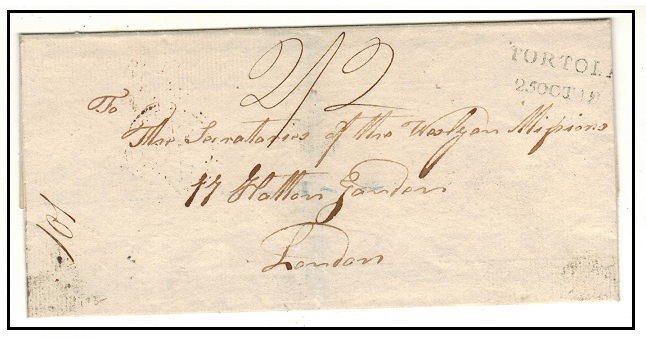 2/2
TORTOLA
25OCT18
To
The Secretaries of the Weslyan Missions
77 Hatton Garden
London
101